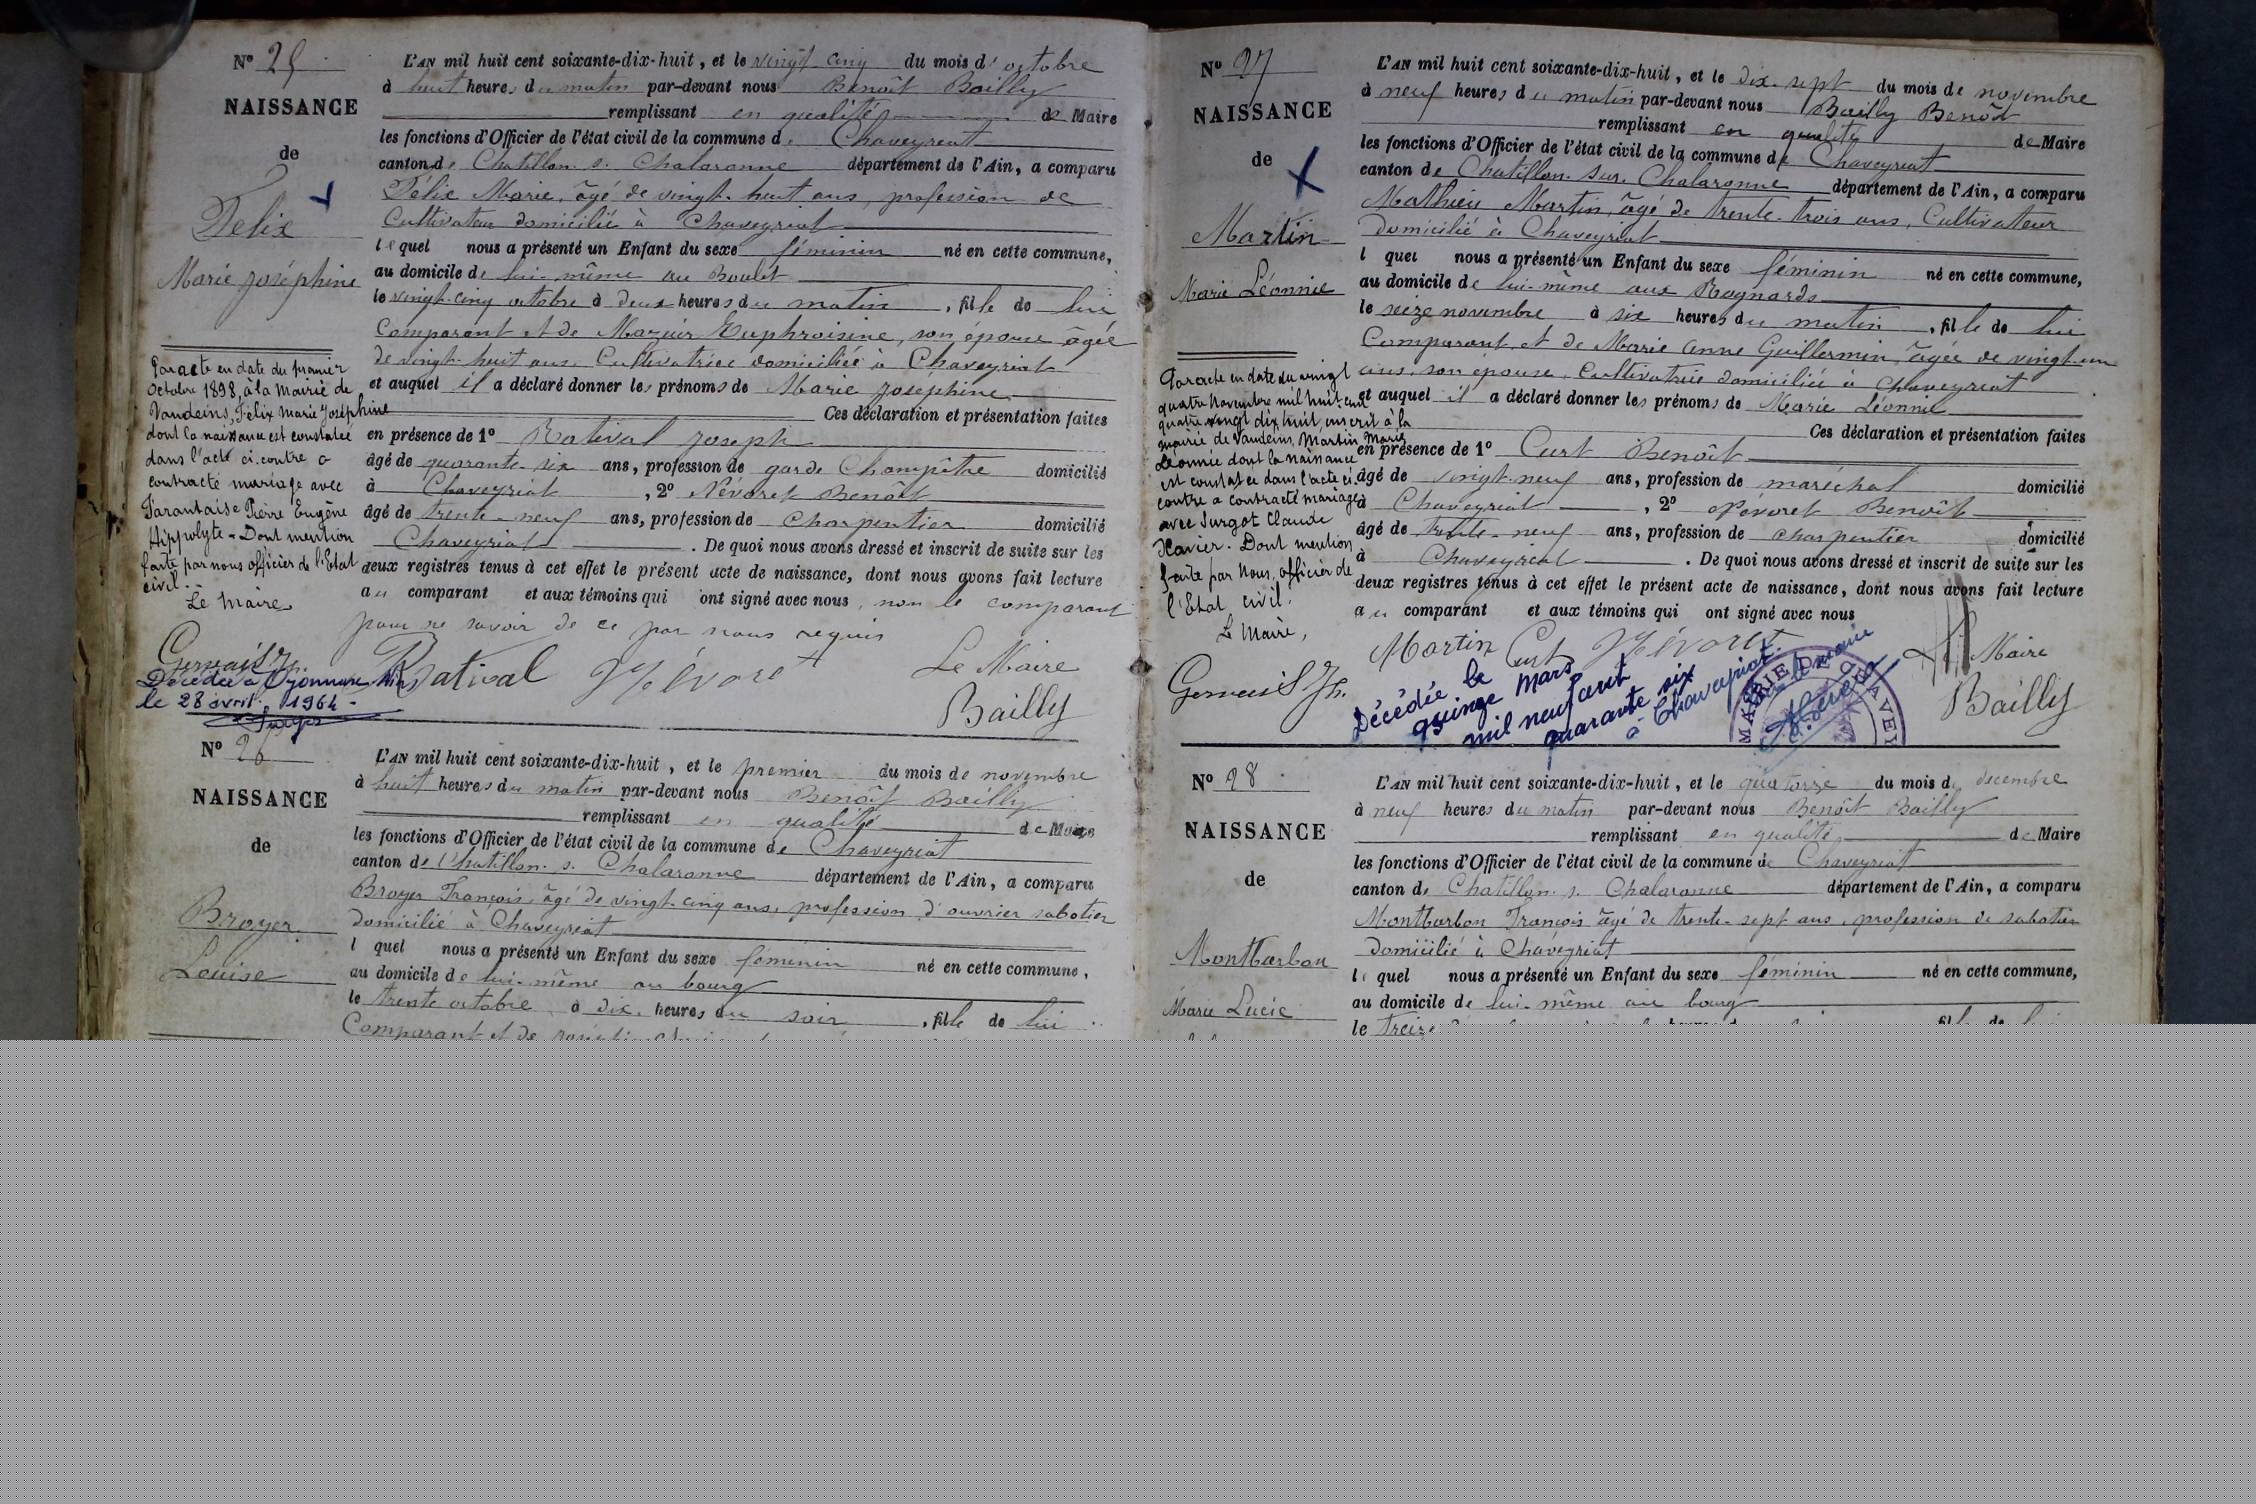 N° 25
NAISSANCE
de
Félix
Marie Joséphine
L'AN mil huit cent soixante-dix-huit, et le vingt cinq du mois d'octobre
à huit heures du matin par-devant nous Benoît Bailly
remplissant en qualité de Maire
les fonctions d'Officier de l'état civil de la commune de Chaveyriat
canton de Chatillon s. Chalaronne département de l'Ain, a comparu
Félix Marie, âgé de vingt-huit ans, profession de
Cultivateur domicilié à Chaveyriat
lequel nous a présenté un Enfant du sexe féminin né en cette commune,
au domicile de lui-même au Boulet
le vingt-cinq octobre à deux heures du matin, fille de lui
Comparant et de Mazuir Euphroisine, son épouse âgée
de vingt-huit ans, Cultivatrice domiciliée à Chaveyriat
et auquel il a déclaré donner les prénoms de Marie Joséphine
Ces déclaration et présentation faites
en présence de 1° Ratival Joseph
âgé de quarante-six ans, profession de garde Champêtre domicilié
à Chaveyriat, 2° Névoret Benoît
âgé de trente-neuf ans, profession de Charpentier domicilié
Chaveyriat. De quoi nous avons dressé et inscrit de suite sur les
deux registres tenus à cet effet le présent acte de naissance, dont nous avons fait lecture
au comparant et aux témoins qui ont signé avec nous, non le comparant
pour ne savoir de ce par nous requis
Ratival Névoret Le Maire
Bailly
Par acte en date du premier
Octobre 1898, à la Mairie de
Vandeins, Félix Marie Joséphine
dont la naissance est constatée
dans l'acte ci-contre a
contracté mariage avec
Tarantaise Pierre Eugène
Hippolyte - Dont mention
faite par nous officier de l'Etat
civil.
Le Maire
Gervais Jh.
Décédée à Oyonnax (Ain)
le 28 avril 1964 -
N° 26
NAISSANCE
de
Broyer
Louise
L'AN mil huit cent soixante-dix-huit, et le premier du mois de novembre
à huit heures du matin par-devant nous Benoît Bailly
remplissant en qualité de Maire
les fonctions d'Officier de l'état civil de la commune de Chaveyriat
canton de Chatillon s. Chalaronne département de l'Ain, a comparu
Broyer François, âgé de vingt-cinq ans, profession d'ouvrier sabotier
domicilié à Chaveyriat
l quel nous a présenté un Enfant du sexe féminin né en cette commune,
au domicile de lui-même au bourg
le trente octobre à dix heures du soir, fille de lui
Comparant et de
N° 27
NAISSANCE
de
Martin
Marie Léonnie
L'AN mil huit cent soixante-dix-huit, et le dix-sept du mois de novembre
à neuf heures du matin par-devant nous Bailly Benoît
remplissant en qualité de Maire
les fonctions d'Officier de l'état civil de la commune de Chaveyriat
canton de Chatillon-sur-Chalaronne département de l'Ain, a comparu
Mathieu Martin, âgé de trente-trois ans, Cultivateur
domicilié à Chaveyriat
l quel nous a présenté un Enfant du sexe féminin né en cette commune,
au domicile de lui-même aux Rognards
le seize novembre à six heures du matin, fille de lui
Comparant et de Marie Anne Guillermin, âgée de vingt-un
ans, son épouse, Cultivatrice domiciliée à Chaveyriat
et auquel il a déclaré donner les prénoms de Marie Léonnie
Ces déclaration et présentation faites
en présence de 1° Curt Benoît
âgé de vingt-neuf ans, profession de maréchal domicilié
à Chaveyriat, 2° Névoret Benoît
âgé de trente-neuf ans, profession de charpentier domicilié
à Chaveyriat. De quoi nous avons dressé et inscrit de suite sur les
deux registres tenus à cet effet le présent acte de naissance, dont nous avons fait lecture
au comparant et aux témoins qui ont signé avec nous
Martin Curt Névoret Maire
Bailly
Par acte en date du vingt
quatre Novembre mil huit cent
quatre vingt dix huit, inscrit à la
mairie de Vandeins, Martin Marie
Léonnie dont la naissance
est constatée dans l'acte ci
contre a contracté mariage
avec Surgot Claude
Xavier. Dont mention
faite par Nous, officier de
l'Etat civil.
Le Maire,
Gervais Jh.
Décédée le
quinze Mars
mil neuf cent
quarante six
à Chaveyriat.
MAIRIE DE CHAVEY
N° 28
NAISSANCE
de
Montbarbon
Marie Lucie
L'AN mil huit cent soixante-dix-huit, et le quatorze du mois de décembre
à neuf heures du matin par-devant nous Benoît Bailly
remplissant en qualité de Maire
les fonctions d'Officier de l'état civil de la commune de Chaveyriat
canton de Chatillon s. Chalaronne département de l'Ain, a comparu
Montbarbon François âgé de trente-sept ans, profession de sabotier
domicilié à Chaveyriat
le quel nous a présenté un Enfant du sexe féminin né en cette commune,
au domicile de lui-même au bourg
le treize